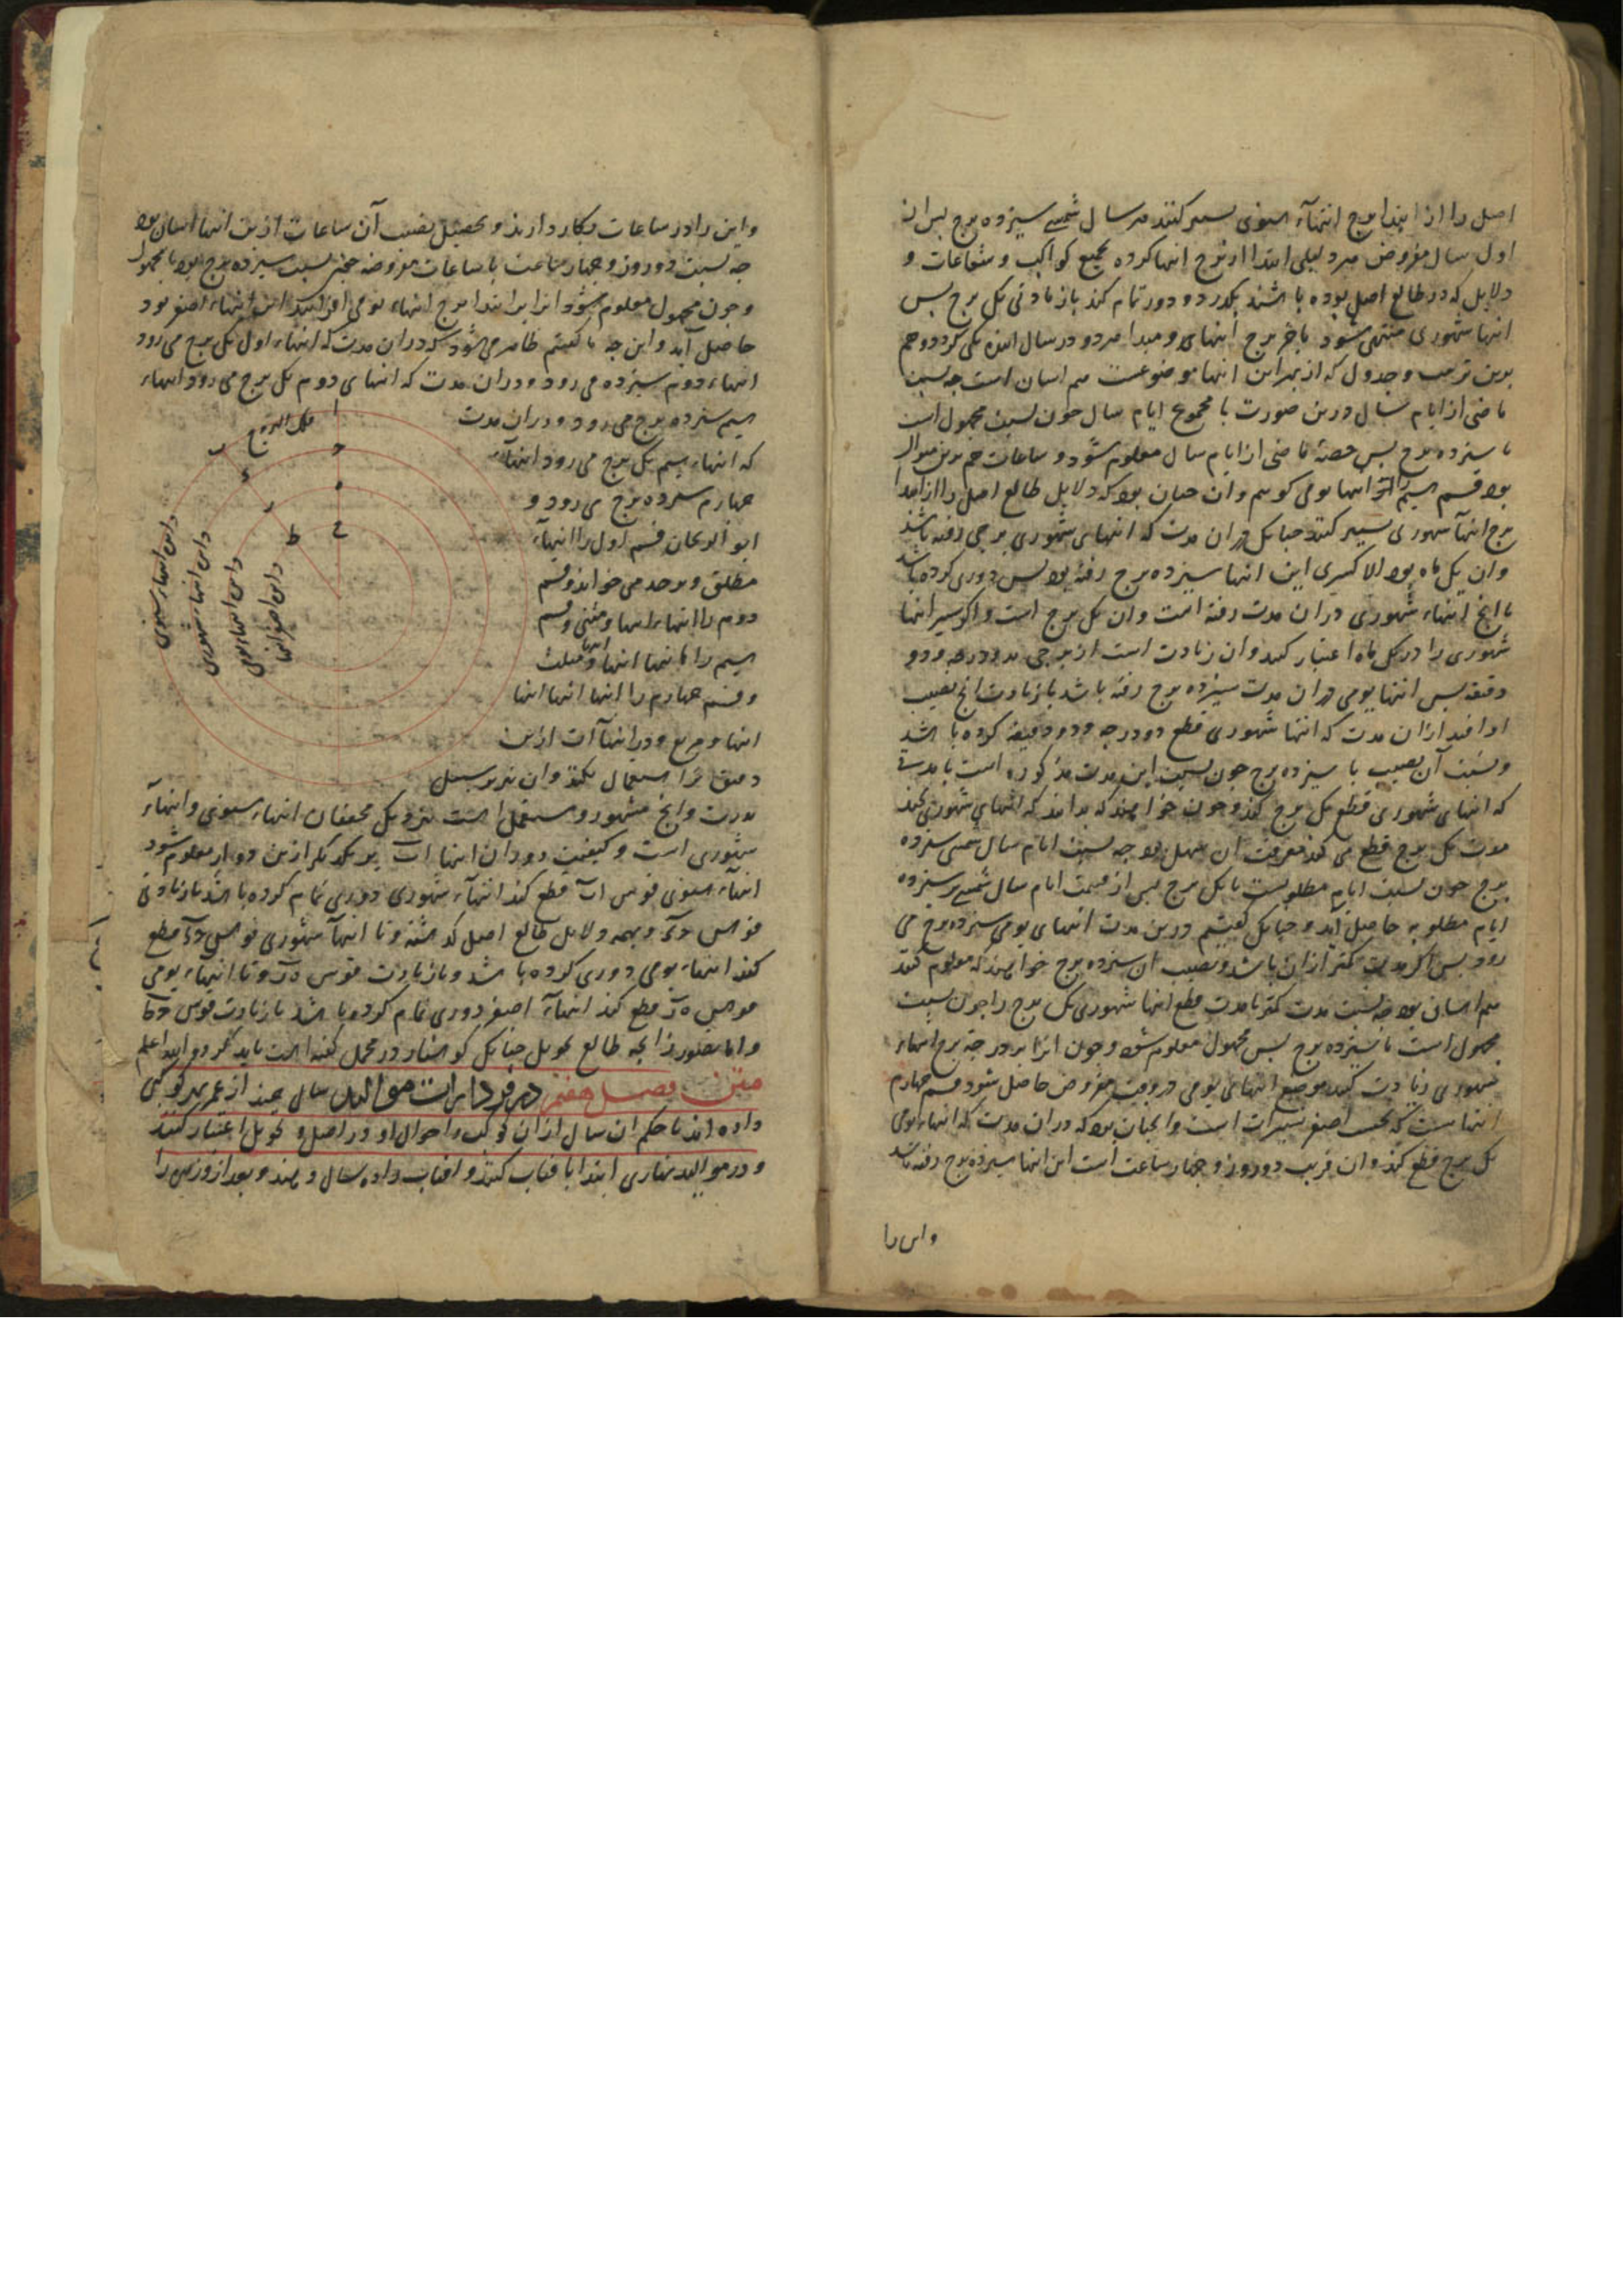 اصل را از ابتدا برج انتهآء سنوی تسییر کنند هر سال شمسی سیزده برج پس از
اول سال مفروض هر دلیلی ابتدا از برج انتها کرده بجمیع کواکب و شعاعات و
دلایل که در طالع اصل بوده باشند بگذرد و دور تمام کند باز یادتی یک برج پس
انتها شهوری منتهی شود باخر برج انتهای و مبدا هر دو در سال آینده یکی گردد و هم
بدین ترتیب و جدول که از بهر این انتها موضوعست هم اسان است چه نسبت
ماضی از ایام سال درین صورت با مجموع ایام سال چون نسبت مجهول است
با سیزده برج پس حصهٔ ماضی از ایام سال معلوم شود و ساعات هم برین منوال
بود قسم سیم را انتها یومی گوییم و آن چنان بود که دلایل طالع اصل را از ابتدا
برج انتها شهوری تسییر کنند چنانک در ان مدت که انتهای شهوری برجی رفته باشد
وان یک ماه بود الا کسری این انتها سیزده برج رفته بود پس دوری کرده باشد
با انج انتهاء شهوری در ان مدت رفته است وان یک برج است و اکر سیر انتها
شهوری را در یک ماه اعتبار کنند وان زیادت است از برجی بدو درجه و دو
دقیقه پس انتها یومی در ان مدت سیزده برج رفته باشد با زیادت انج نصیب
او افتد از ان مدت که انتها شهوری قطع دو درجه و دو دقیقه کرده باشد
و نسبت آن نصیب با سیزده برج چون نسبت این مدت مذکوره است با مدت
که انتهای شهوری قطع یک برج کند و چون خواهند که بدانند که انتهای شهوری بچند
مدت یک برج قطع می کند معرفت ان سهل بود چه نسبت ایام سال شمسی سیزده
برج چون نسبت ایام مطلوبست با یک برج پس از قسمت ایام سال شمسی بر سیزده
ایام مطلوبه حاصل آید و چنانک گفتیم درین مدت انتهای یومی سیزده برج می
رود پس اکر مدت کمتر ازان باشد و نصیب ان سیزده برج خواهند که معلوم کنند
هم اسان بود چه نسبت مدت کمتر با مدت قطع انتها شهوری یک برج را چون نسبت
مجهول است با سیزده برج پس مجهول معلوم شود و چون انرا بر درجه برج انتهاء
شهوری زیادت کنند موضع انتهای یومی در وقت مفروض حاصل شود قسم چهارم
انتهاست که بحسب اصغر تسییرات است و انچنان بود که در ان مدت که انتهاء یومی
یک برج قطع کند وان قریب دو روز و چهار ساعت است این انتها سیزده برج رفته باشد
واین را
واین را در ساعات بکار دارند و تحصیل نصیب آن ساعات ازین انتها اسان بود
چه نسبت دو روز و چهار ساعت با ساعات مفروضه همچون نسبت سیزده برج بود با مجهول
و چون مجهول معلوم شود انرا بر ابتدا برج انتهاء یومی افزایند انتهاء اصغر بود
حاصل آید و این چه ما گفتیم ظاهر می شود که در ان مدت که انتهاء اول یک برج می رود
انتهاء دوم سیزده می رود و دران مدت که انتهای دوم یک برج می رود انتهاء
سیم سیزده برج می رود و دران مدت
که انتهاء سیم یک برج می رود انتهآء
چهارم سیزده برج می رود و
ابو الریحان قسم اول را انتهآء
مطلق و موحد می خواند و قسم
دوم را انتهاء انتها و مثنی و قسم
سیم را بانتها انتها انتها و مثلث
و قسم چهارم را انتها انتها انتها
انتها و مربع و در انتهاآت ازین
دقیق تر استعمال نکنند وان نیز بر سبیل
ندرت و انج مشهور و مستعمل است نزدیک محققان انتهاء سنوی و انتهآء
شهوری است و کیفیت دوران انتهاات بر یکدیکر ازین دوایر معلوم شود
انتهآء سنوی قوس ا ب قطع کند انتهآء شهوری دوری تمام کرده باشد باز یادتی
قوس ح د و بهمه دلایل طالع اصل گذشته و تا انتهآ شهوری قوس ح د قطع
کند انتهاء یومی دوری کرده باشد و باز یادت قوس ه ز و تا انتهاء یومی
قوس ه ز قطع کند انتهآء اصغر دوری تمام کرده باشد باز یادت قوس ح ط
و اما بطور زایجه طالع تحویل چنانک کوشیار در مجمل گفته است باید نگر و الله اعلم
متن فصل هفتم در فردارات موالید سالی چند از عمر بهر کوکبی
داده اند تا حکم ان سال از ان کوکب و احوال او در اصل و تحویل اعتبار کنند
و در موالید نهاری ابتدا بافتاب کنند و افتاب را ده سال دهند و بعد از و زهره را
فلک البروج
ا
ب
ح
د
ه
ز
ح
ط
دایره انتهاء سنوی
دایره انتهاء شهوری
دایره انتهاء یومی
دایره اصغر انتها